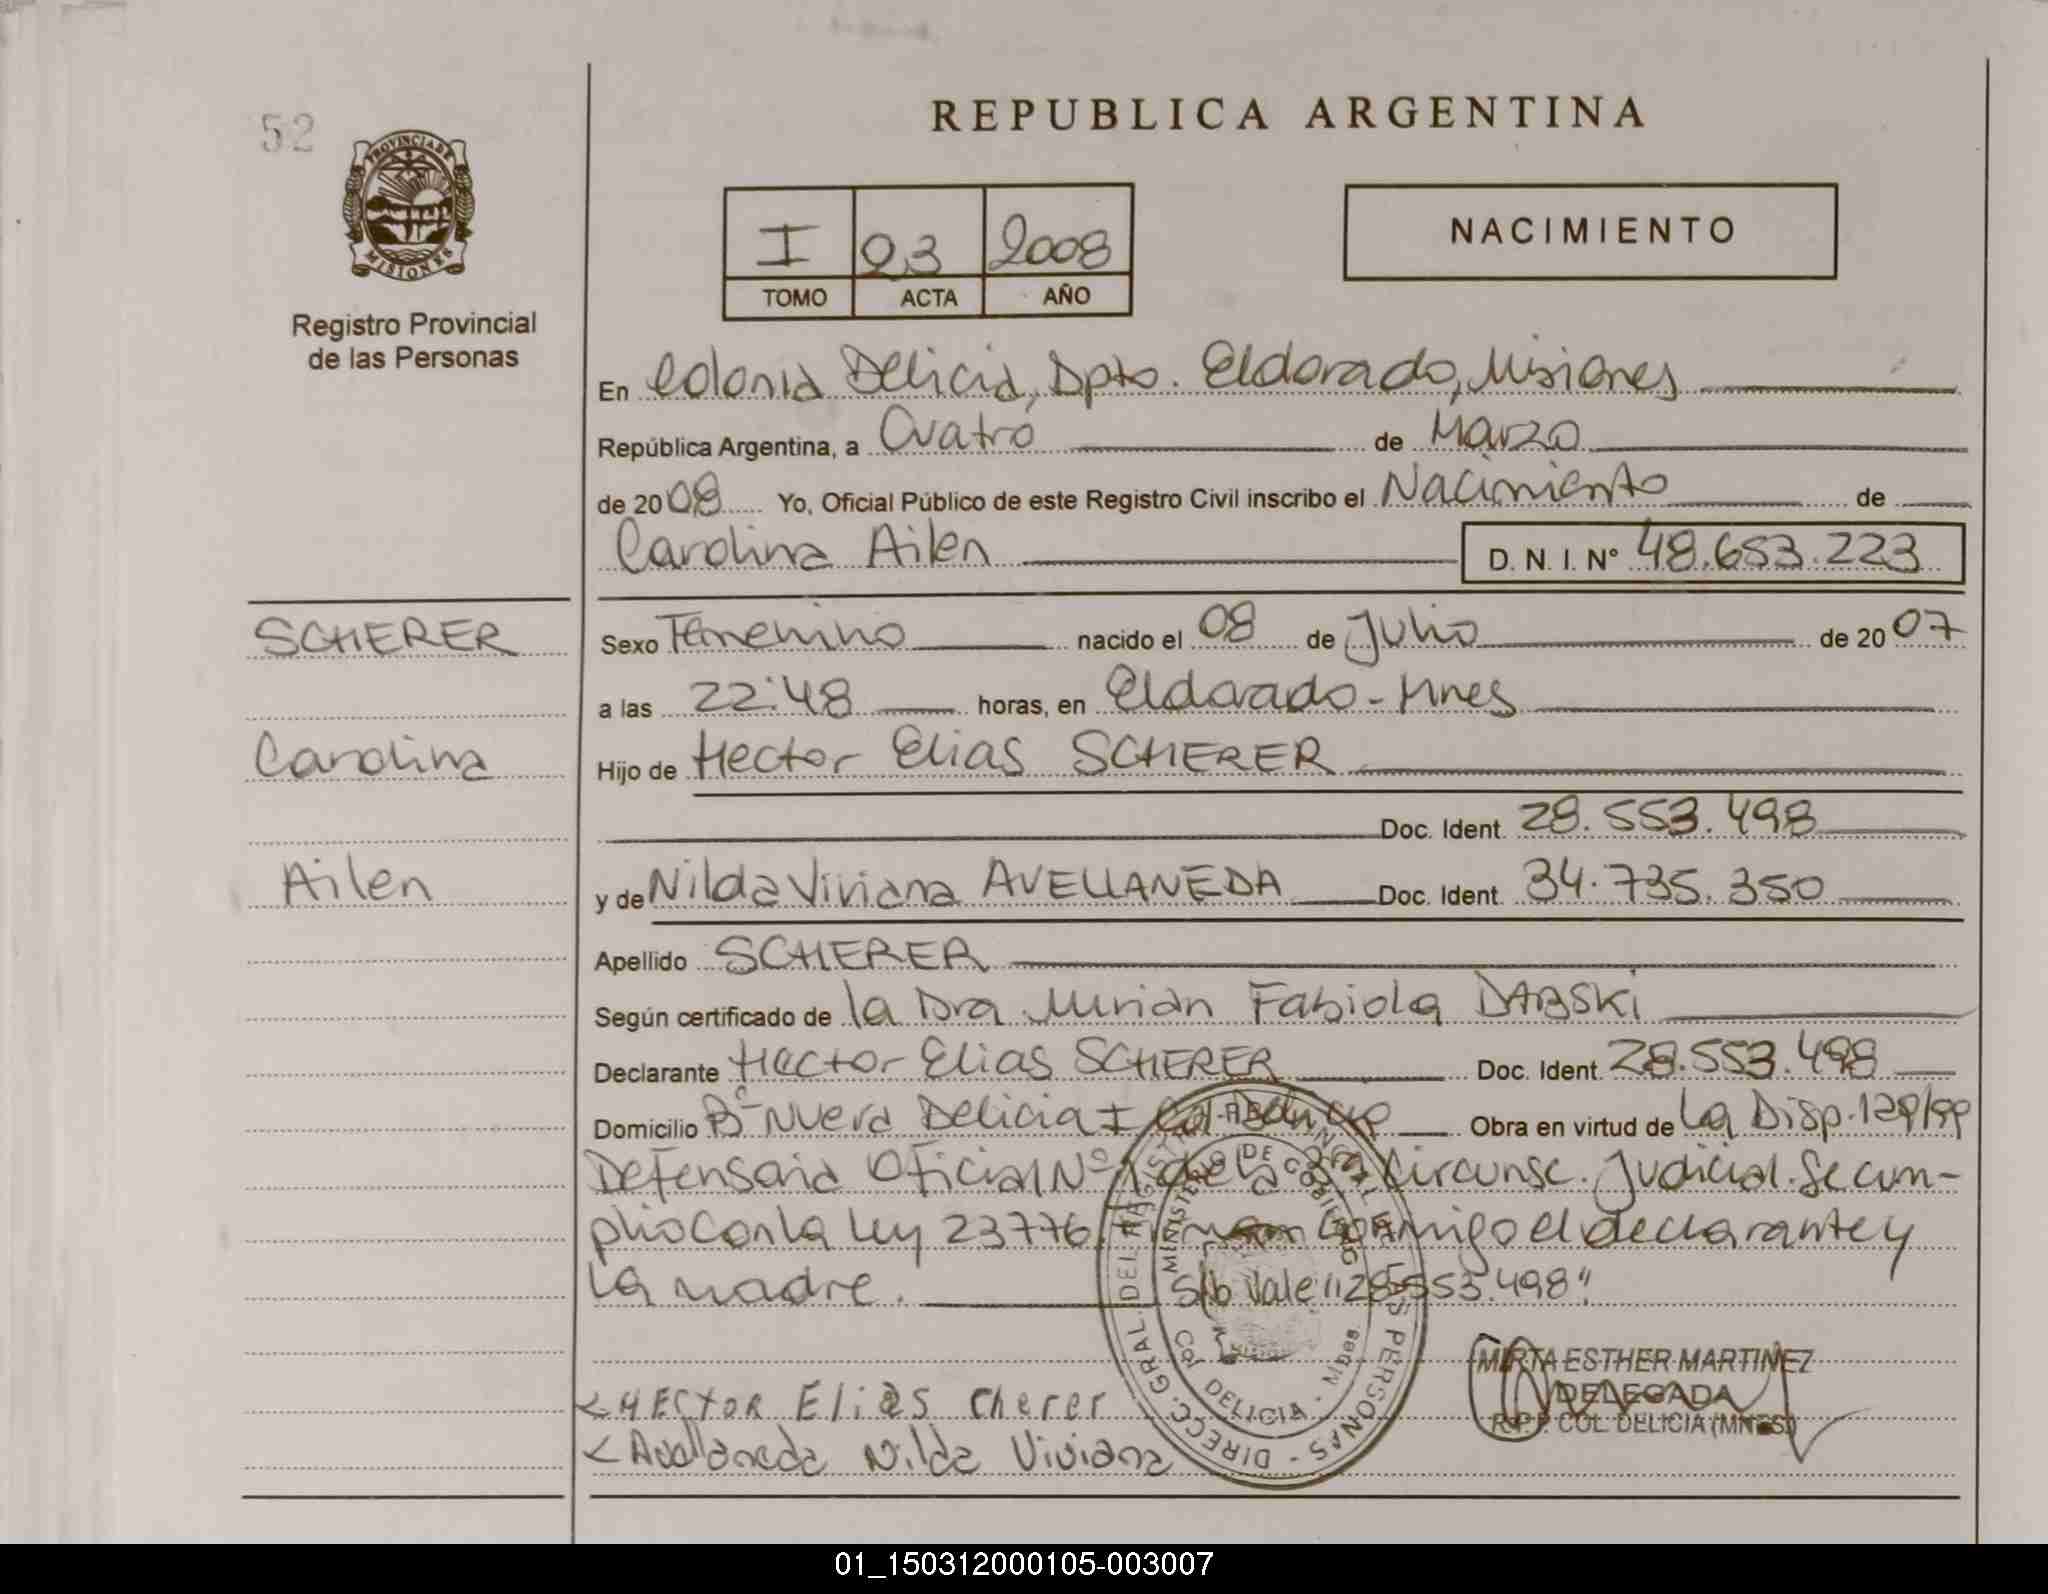 REPUBLICA ARGENTINA
52
PROVINCIA DE
MISIONES
Registro Provincial
de las Personas
I 23 2008
TOMO ACTA AÑO
NACIMIENTO
En Colonia Delicia, Dpto. Eldorado, Misiones
República Argentina, a Cuatro de Marzo
de 2008 Yo, Oficial Público de este Registro Civil inscribo el Nacimiento de
Carolina Ailen D. N. I. N° 48.653.223
SCHERER
Carolina
Ailen
Sexo Femenino nacido el 08 de Julio de 2007
a las 22:48 horas, en Eldorado - Mnes
Hijo de Hector Elias SCHERER
Doc. Ident. 28.553.498
y de Nilda Viviana AVELLANEDA Doc. Ident. 34.735.350
Apellido SCHERER
Según certificado de la Dra Mirian Fabiola DABSKI
Declarante Hector Elias SCHERER Doc. Ident. 28.553.498
Domicilio Bº Nueva Delicia I Col. Delicia Obra en virtud de la Disp. 129/99
Defensoria Oficial Nº 1 de la 3ra Circunsc. Judicial. Se cum-
plio con la ley 23776. Firman conmigo el declarante y
la madre. S/b Vale "28.553.498".
DIRECC. GRAL DEL REGISTRO PROVINCIAL DE LAS PERSONAS
MINISTERIO DE GOBIERNO
Col. DELICIA - Mnes.
MIRTA ESTHER MARTINEZ
DELEGADA
R.P.P. COL. DELICIA (MNES)
HECTOR Elias Cherer
Avallaneda Nilda Viviana
01_150312000105-003007